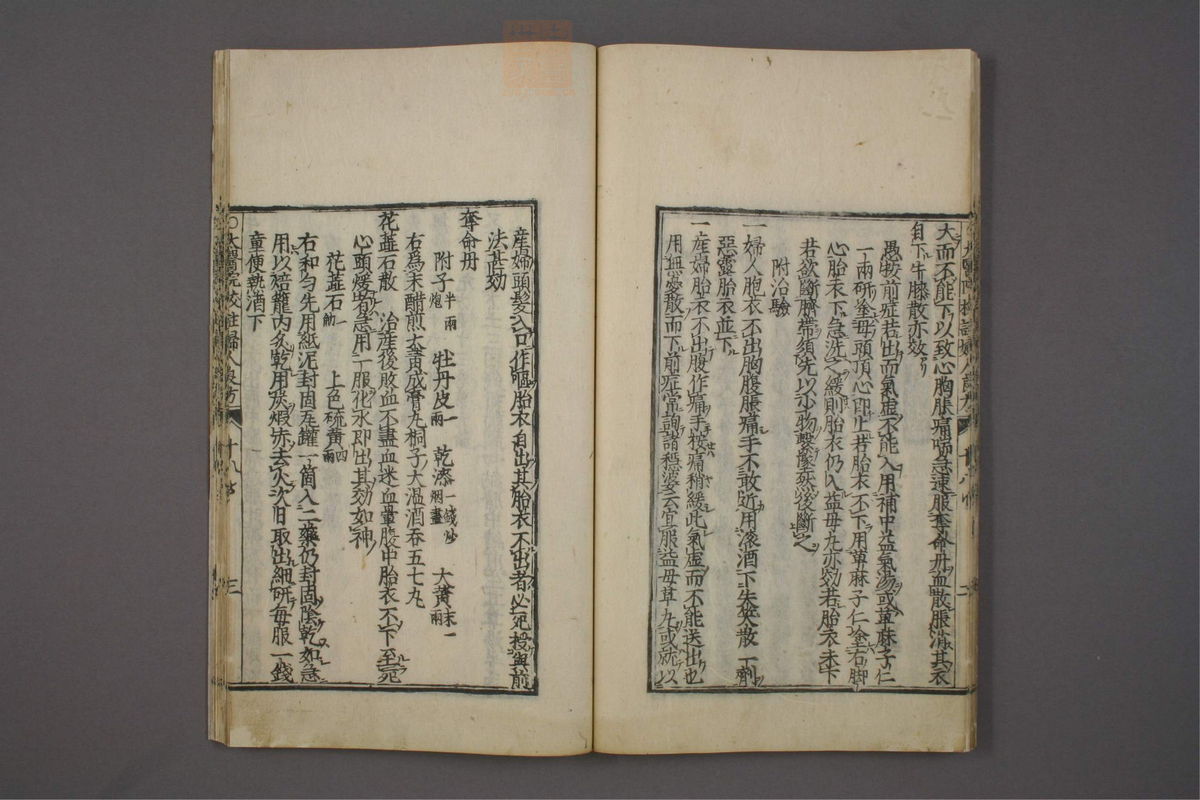 大而不能下以致心胸脹痛喘急速服奪命丹血散脹消其衣
自下牛膝散亦效
愚按前症若出而氣虛不能入用補中益氣湯或萆麻子仁
一兩研塗母頭頂心即止若胎衣不下用萆麻子仁塗右脚
心胎衣下急洗之緩則胎衣仍入益母丸亦効若胎衣未下
若欲斷臍帶須先以少物繫墜然後斷之
附治驗
一婦人胞衣不出胸腹脹痛手不敢近用滚酒下失笑散一劑
惡露胎衣並下
一產婦胎衣不出腹作痛手按痛稍緩此氣虛而不能送出也
用無憂散而下前症當詢諸穩婆云宜服益母草丸或就以
產婦頭髮入口作嘔胎衣自出其胎衣不出者必死授與前
法甚効
奪命丹
附子半兩炮 牡丹皮一兩 乾漆一錢炒烟盡 大黃末一兩
右為末醋煎大黃成膏丸桐子大温酒吞五七丸
花蕋石散 治產後敗血不盡血迷血暈腹中胎衣不下至死
心頭煖者急用一服化水即出其効如神
花蕋石一觔 上色硫黃四兩
右和勻先用紙泥封固瓦罐一箇入二藥仍封固陰乾如急
用以焙籠內炙乾用炭煅赤去火次日取出細研每服一錢
童便熱酒下
太醫院校註婦人良方 十八 三